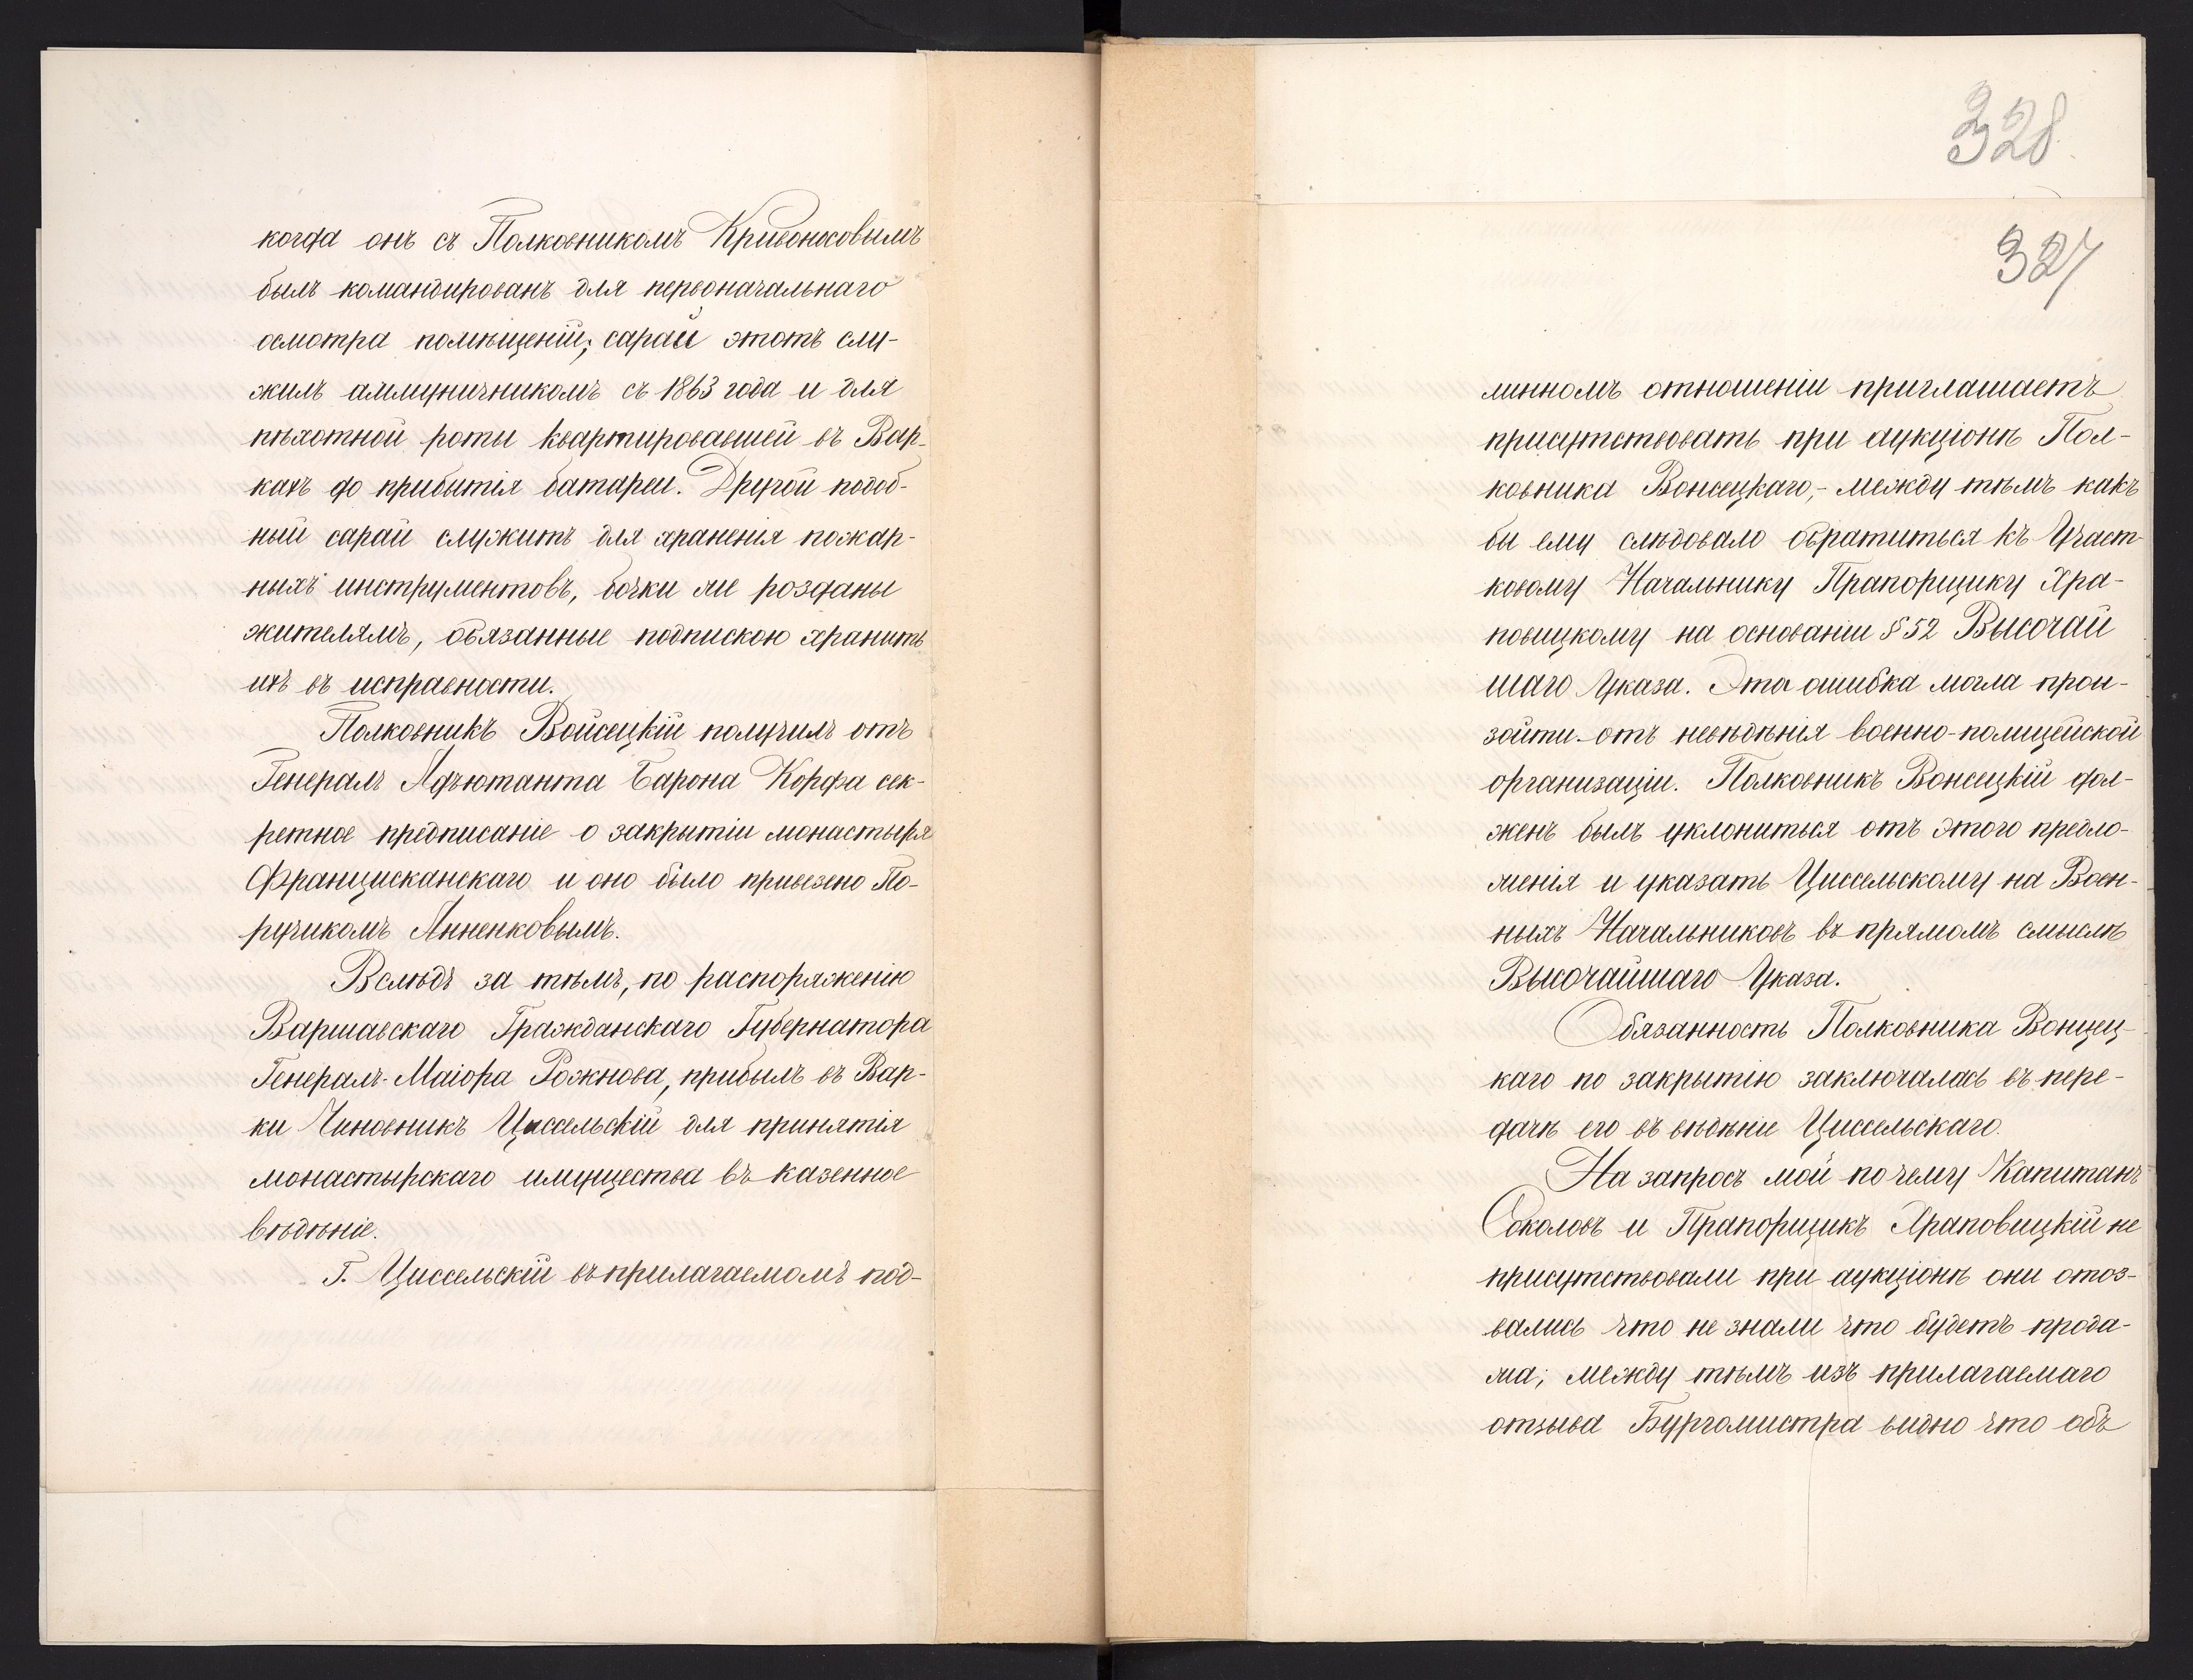 когда онъ съ Полковникомъ Кривоносовымъ
былъ командированъ для первоначальнаго
осмотра помѣщеній; сарай этотъ слу-
жилъ аммуничникомъ съ 1863 года и для
пѣхотной роты квартировавшей въ Вар-
кахъ до прибытія батареи. Другой подоб-
ный сарай служитъ для храненія пожар-
ныхъ инструментовъ, бочки же розданы
жителямъ, обязанные подпискою хранить
ихъ въ исправности.
Полковникъ Войсецкій получилъ отъ
Генералъ Адъютанта Барона Корфа сек-
ретное предписаніе о закрытіи монастыря
Францисканскаго и оно было привезено По-
ручикомъ Анненковымъ.
Вслѣдъ за тѣмъ, по распоряженію
Варшавскаго Гражданскаго Губернатора
Генералъ-Маіора Рожнова, прибылъ въ Вар-
ки Чиновникъ Циссельскій для принятія
монастырскаго имущества въ казенное
вѣдѣніе.
Г. Циссельскій въ прилагаемомъ под-
328
327
линномъ отношеніи приглашаетъ
присутствовать при аукціонѣ Пол-
ковника Вонсецкаго,- между тѣмъ какъ
бы ему слѣдовало обратиться къ Участ-
ковому Начальнику Прапорщику Хра-
повицкому на основаніи § 52 Высочай
шаго Указа. Эта ошибка могла прои-
зойти отъ невѣдѣнія военно-полицейской
организаціи. Полковникъ Вонсецкій дол-
женъ былъ уклониться отъ этого предло-
женія и указать Циссельскому на Воен-
ныхъ Начальниковъ въ прямомъ смыслѣ
Высочайшаго Указа.
Обязанность Полковника Вонцец-
каго по закрытію заключалась въ пере-
дачѣ его въ вѣдѣніе Циссельскаго.
На запросъ мой почему Капитанъ
Соколовъ и Прапорщикъ Храповицкій не
присутствовали при аукціонѣ они отоз-
вались что не знали что будетъ прода-
жа; между тѣмъ изъ прилагаемаго
отзыва Бургомистра видно что объ